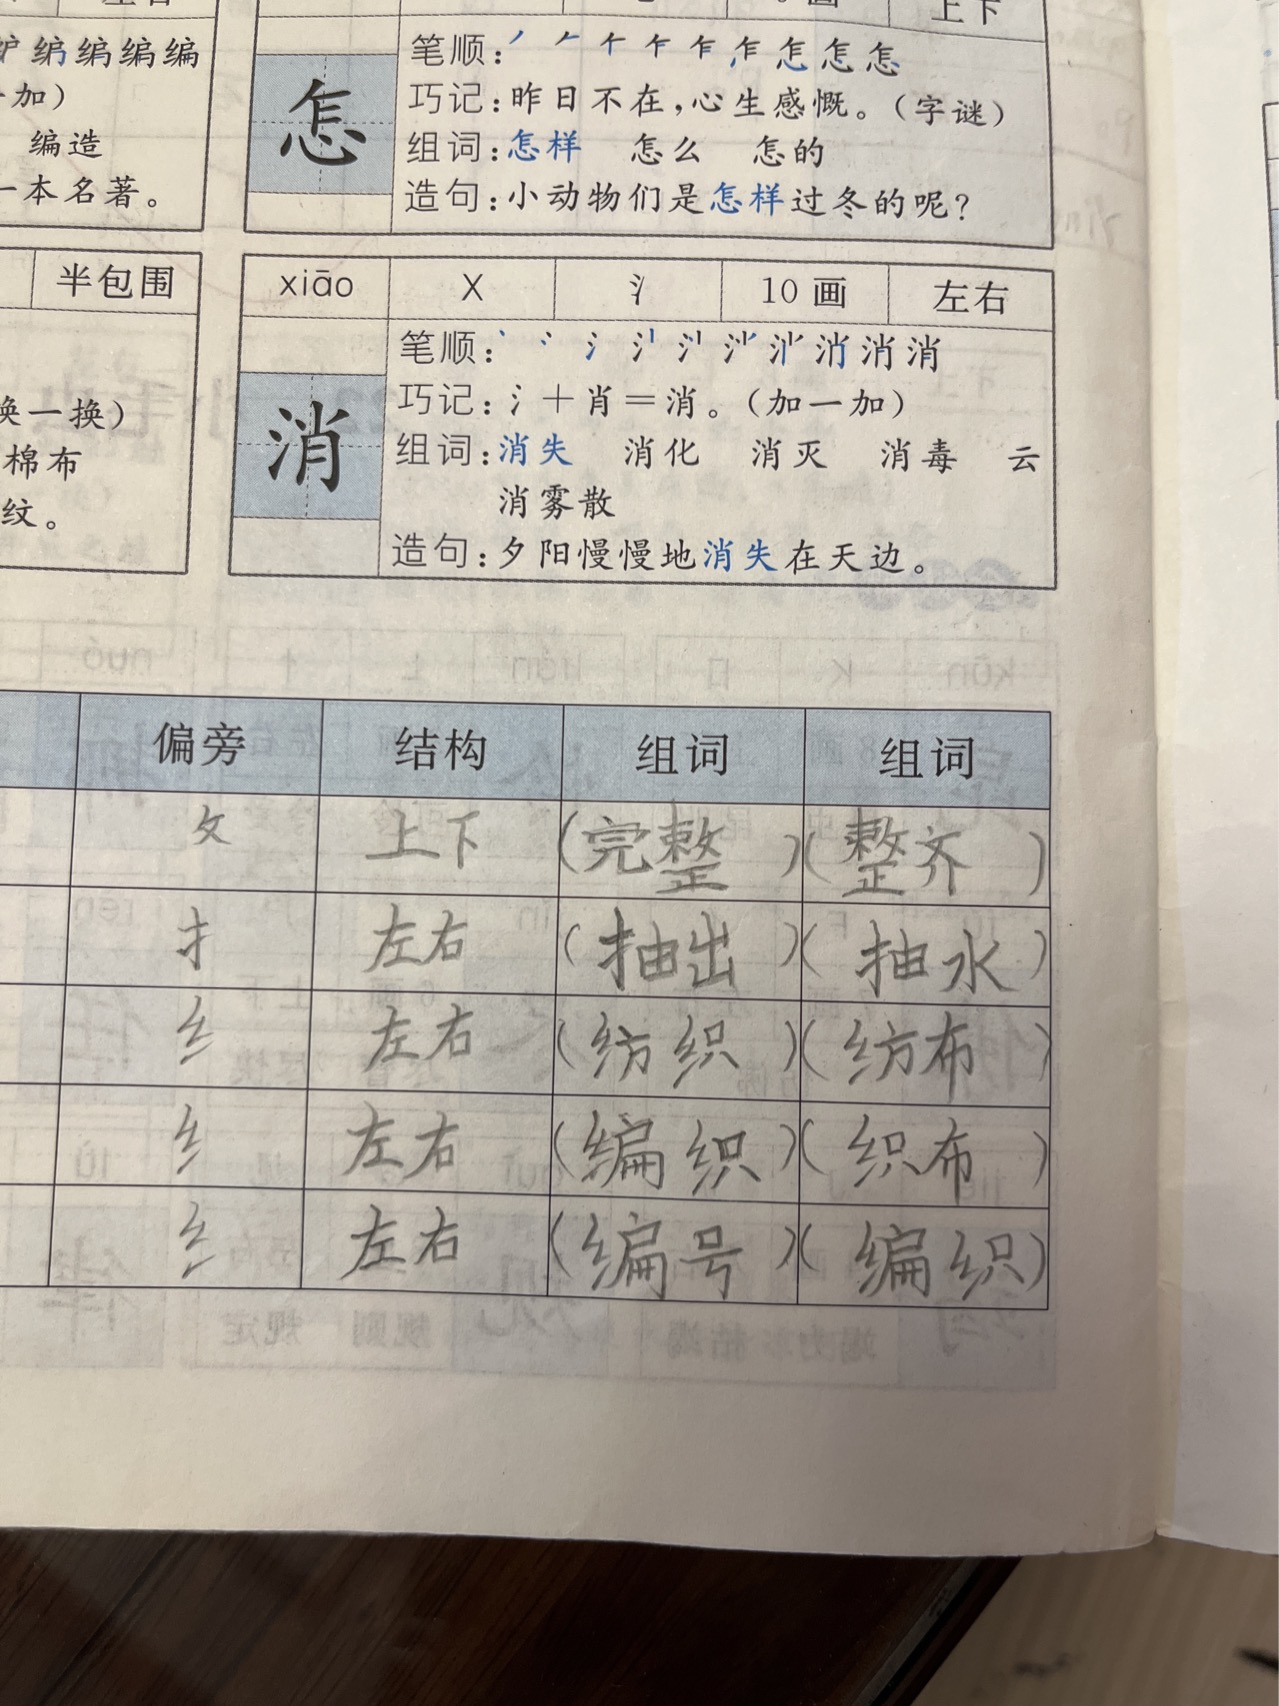 上下
编 编 编 编
加）
编造
一本名著。
怎
笔顺：
怎 怎 怎
巧记：昨日不在，心生感慨。（字谜）
组词：怎样 怎么 怎的
造句：小动物们是怎样过冬的呢？
半包围
换一换）
棉布
纹。
xiāo X 氵 10 画 左右
消
笔顺：
消 消 消
巧记：氵＋肖＝消。（加一加）
组词：消失 消化 消灭 消毒 云
消雾散
造句：夕阳慢慢地消失在天边。
偏旁 结构 组词 组词
攵 上下 （完整）（整齐）
扌 左右 （抽出）（抽水）
纟 左右 （纺织）（纺布）
纟 左右 （编织）（织布）
纟 左右 （编号）（编织）